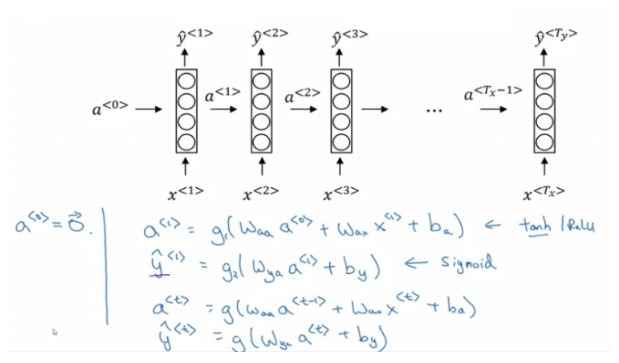 ŷ<1> ŷ<2> ŷ<3> ŷ<Ty>
a<0> a<1> a<2> ... a<Tx−1>
x<1> x<2> x<3> x<Tx>
a<0> = 0⃗.
a<1> = g₁(Waa a<0> + Wax x<1> + ba) ← tanh / ReLU
ŷ<1> = g₂(Wya a<1> + by) ← Sigmoid
a<t> = g(Waa a<t-1> + Wax x<t> + ba)
ŷ<t> = g(Wya a<t> + by)